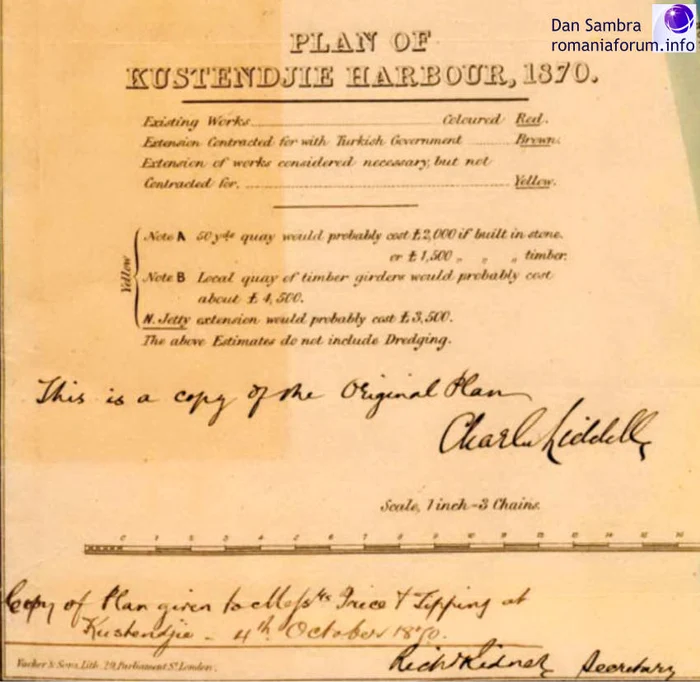 Dan Sambra
romaniaforum.info
PLAN OF
KUSTENDJIE HARBOUR, 1870.
Existing Works Coloured Red.
Extension Contracted for with Turkish Government Brown.
Extension of works considered necessary, but not
Contracted for. Yellow.
Yellow
Note A 50 yds quay would probably cost £2,000 if built in stone.
or £1,500 " " " timber.
Note B Local quay of timber girders would probably cost
about £4,500.
N. Jetty extension would probably cost £3,500.
The above Estimates do not include Dredging.
This is a copy of the Original Plan
Charles Liddell
Scale, 1 inch = 3 Chains.
0 1 2 3 4 5 6 7 8 9 10 11 12 13 14 15 16
Copy of Plan given to Messrs Price & Tipping at
Kustendjie - 4th October 1870.
Vacher & Sons, Lith. 29, Parliament St. London.
Secretary